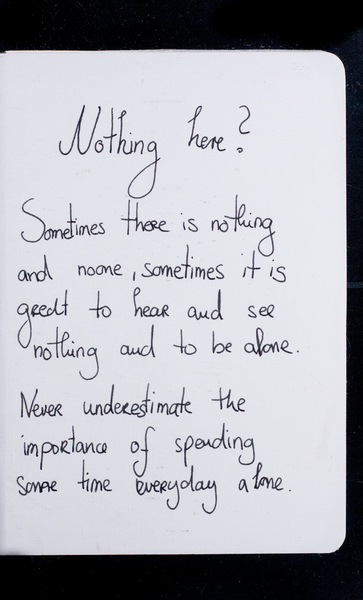 Nothing here?
Sometimes there is nothing
and noone, sometimes it is
greedt to hear and see
nothing and to be alone.
Never underestimate the
importance of spending
some time everyday alone.